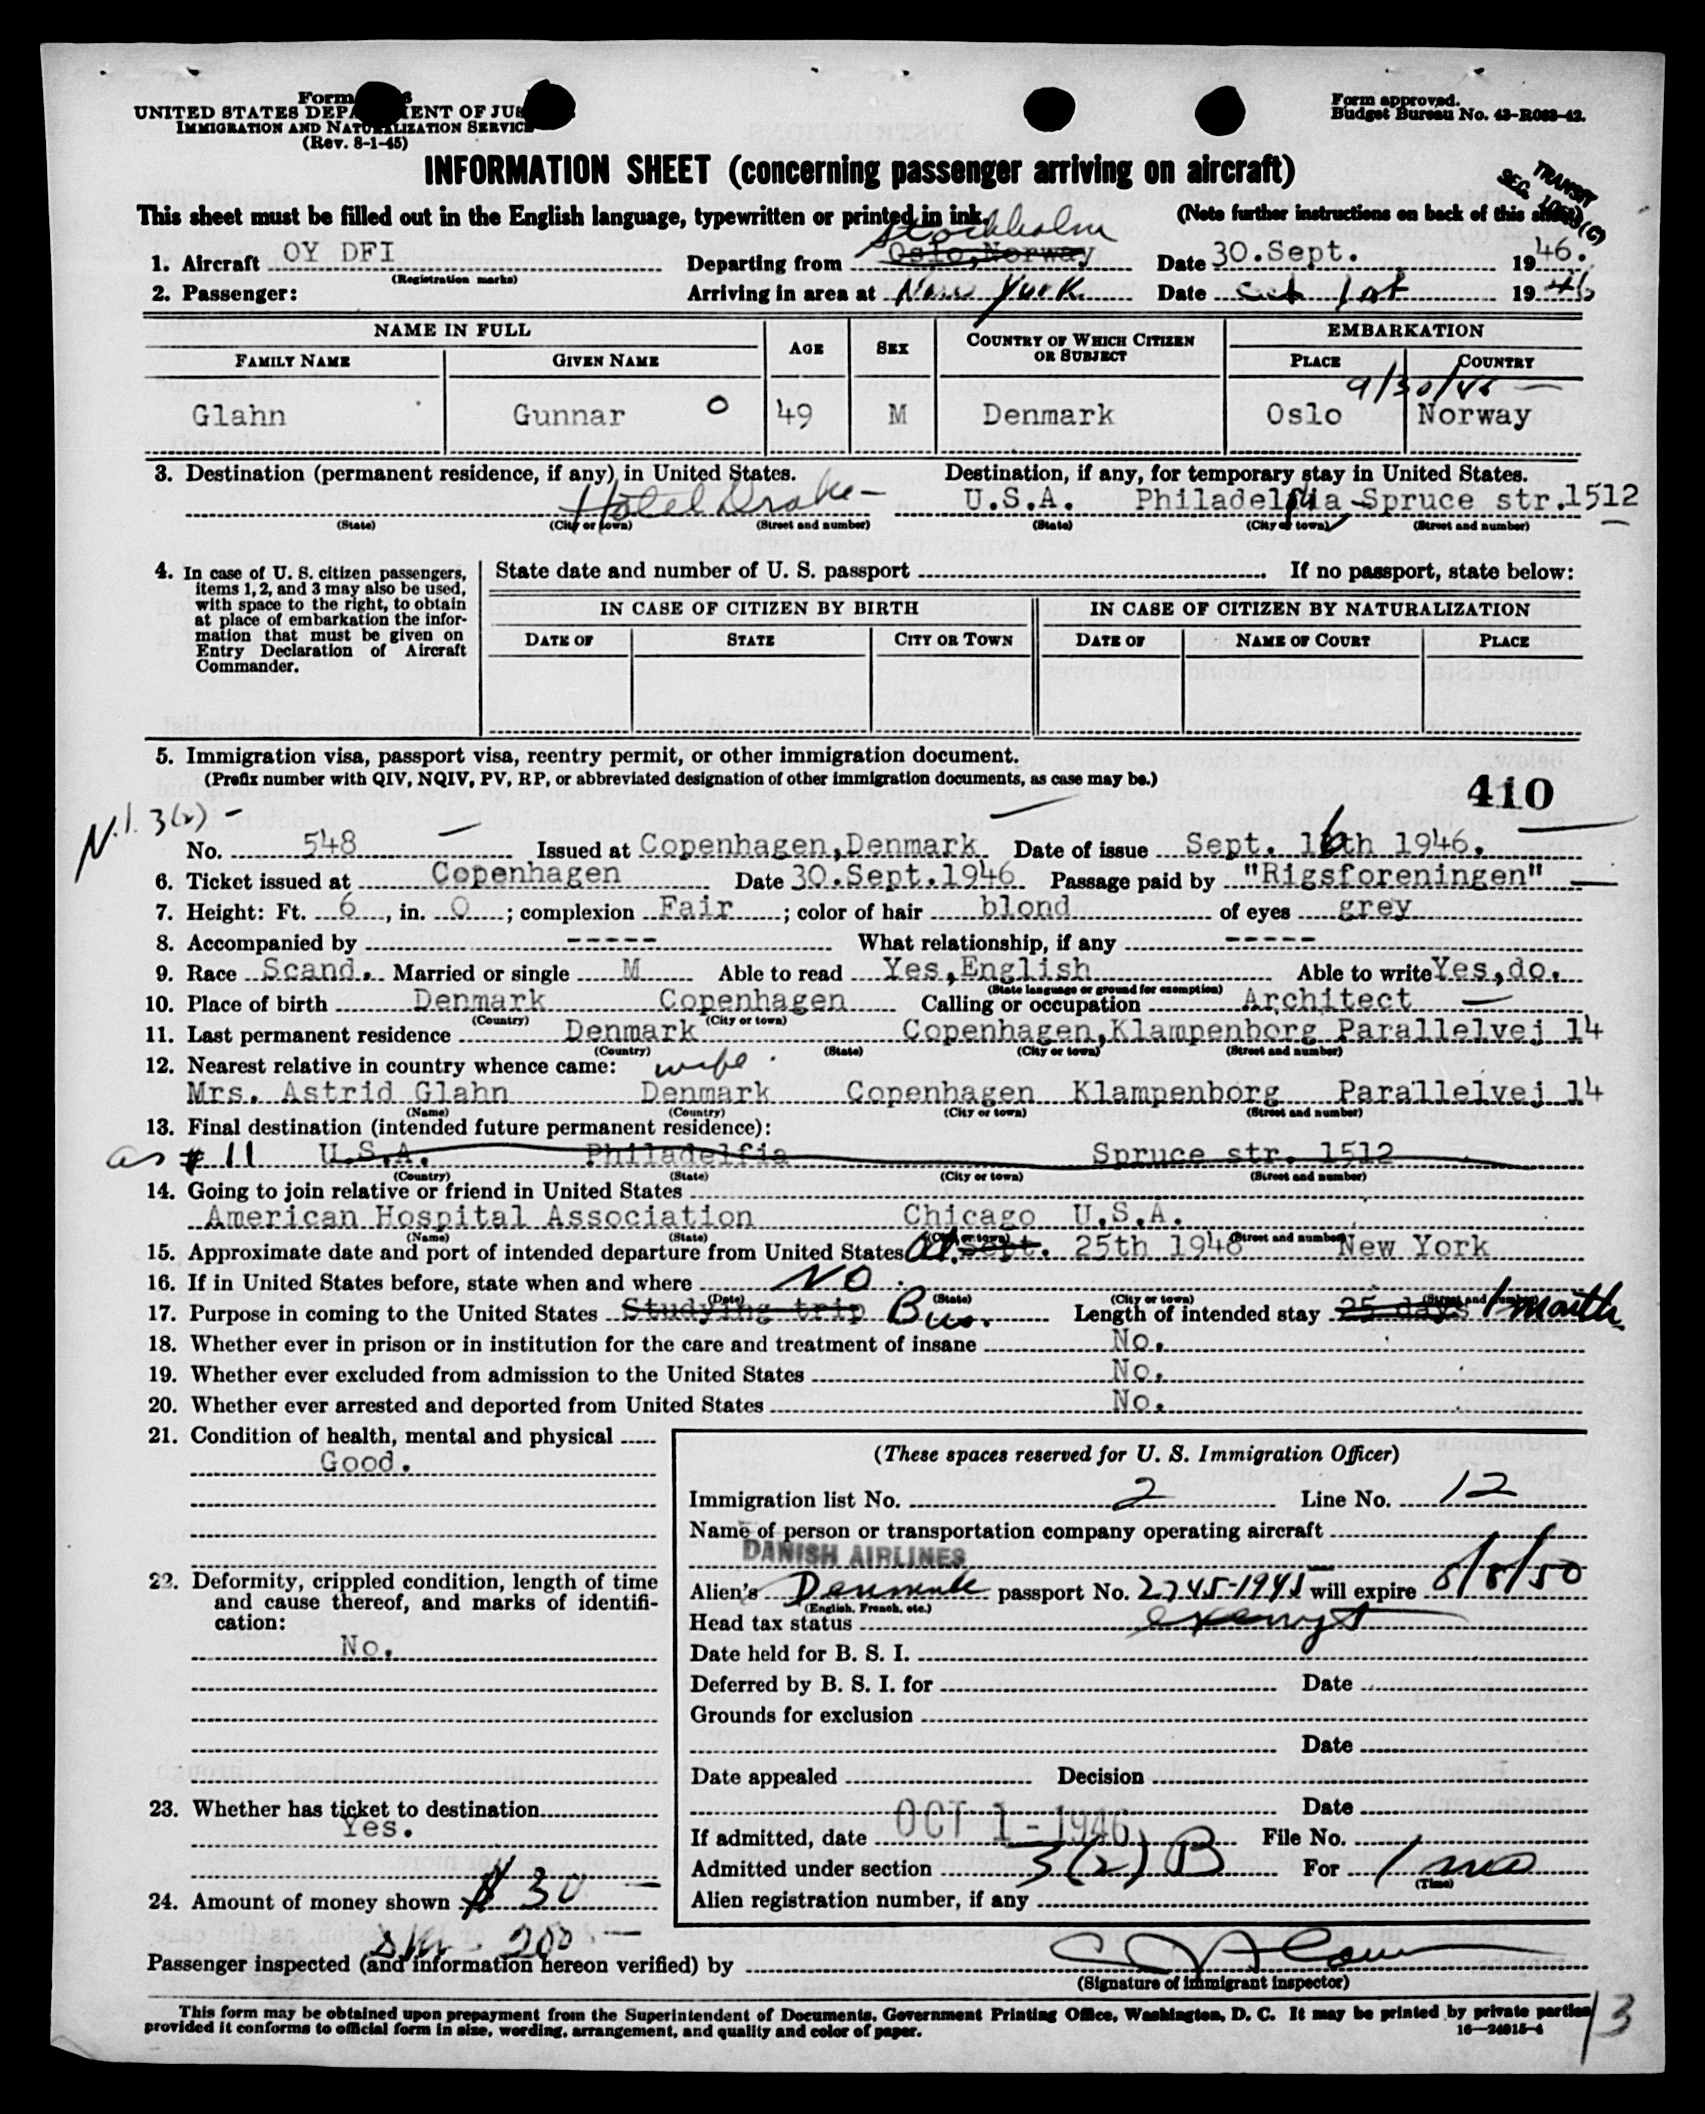 Form
UNITED STATES DEPARTMENT OF JUSTICE
IMMIGRATION AND NATURALIZATION SERVICE
(Rev. 8-1-45)
Form approved.
Budget Bureau No. 43-R063-42.
INFORMATION SHEET (concerning passenger arriving on aircraft)
TRANSIT
This sheet must be filled out in the English language, typewritten or printed in ink. (Note further instructions on back of this sheet)
Stockholm
1. Aircraft OY DFI Departing from Oslo,Norway Date 30.Sept. 1946.
(Registration marks)
2. Passenger: Arriving in area at New York Date Oct 1st 1946
NAME IN FULL AGE SEX COUNTRY OF WHICH CITIZEN OR SUBJECT EMBARKATION
FAMILY NAME GIVEN NAME PLACE COUNTRY
9/30/46
Glahn Gunnar O 49 M Denmark Oslo Norway
3. Destination (permanent residence, if any) in United States. Destination, if any, for temporary stay in United States.
Hotel Drake - U.S.A. Philadelphia Spruce str.1512
(State) (City or town) (Street and number) (State) (City or town) (Street and number)
4. In case of U. S. citizen passengers, items 1, 2, and 3 may also be used, with space to the right, to obtain at place of embarkation the information that must be given on Entry Declaration of Aircraft Commander.
State date and number of U. S. passport If no passport, state below:
IN CASE OF CITIZEN BY BIRTH IN CASE OF CITIZEN BY NATURALIZATION
DATE OF STATE CITY OR TOWN DATE OF NAME OF COURT PLACE
5. Immigration visa, passport visa, reentry permit, or other immigration document.
(Prefix number with QIV, NQIV, PV, RP, or abbreviated designation of other immigration documents, as case may be.)
410
N.I. 3(2) -
No. 548 Issued at Copenhagen,Denmark Date of issue Sept. 16th 1946.
6. Ticket issued at Copenhagen Date 30.Sept.1946 Passage paid by "Rigsforeningen"
7. Height: Ft. 6, in. 0; complexion Fair; color of hair blond of eyes grey
8. Accompanied by ----- What relationship, if any -----
9. Race Scand. Married or single M Able to read Yes,English Able to write Yes,do.
(State language or ground for exemption)
10. Place of birth Denmark Copenhagen Calling or occupation Architect
(Country) (City or town)
11. Last permanent residence Denmark Copenhagen,Klampenborg Parallelvej 14
(Country) (State) (City or town) (Street and number)
12. Nearest relative in country whence came: wife
Mrs. Astrid Glahn Denmark Copenhagen Klampenborg Parallelvej 14
(Name) (Country) (City or town) (Street and number)
13. Final destination (intended future permanent residence):
as # 11 U.S.A. Philadelfia Spruce str. 1512
(Country) (State) (City or town) (Street and number)
14. Going to join relative or friend in United States
American Hospital Association Chicago U.S.A.
(Name) (State) (City or town) (Street and number)
15. Approximate date and port of intended departure from United States Oct. Sept. 25th 1946 New York
16. If in United States before, state when and where NO
(Date) (State) (City or town) (Street and number)
17. Purpose in coming to the United States Studying trip Bus. Length of intended stay 25 days 1 month
18. Whether ever in prison or in institution for the care and treatment of insane No.
19. Whether ever excluded from admission to the United States No.
20. Whether ever arrested and deported from United States No.
21. Condition of health, mental and physical
Good.
22. Deformity, crippled condition, length of time and cause thereof, and marks of identification:
No.
23. Whether has ticket to destination
Yes.
24. Amount of money shown $ 30 -
200 -
(These spaces reserved for U. S. Immigration Officer)
Immigration list No. 2 Line No. 12
Name of person or transportation company operating aircraft
DANISH AIRLINES
Alien's Denmark passport No. 2745-1945 will expire 8/8/50
(English, French, etc.)
Head tax status exempt
Date held for B. S. I.
Deferred by B. S. I. for Date
Grounds for exclusion
Date
Date appealed Decision
Date
If admitted, date OCT 1 - 1946 File No.
Admitted under section 3(2) B For 1 mo
(Time)
Alien registration number, if any
Passenger inspected (and information hereon verified) by
(Signature of immigrant inspector)
This form may be obtained upon prepayment from the Superintendent of Documents, Government Printing Office, Washington, D. C. It may be printed by private parties
provided it conforms to official form in size, wording, arrangement, and quality and color of paper.
16—24015-4
13